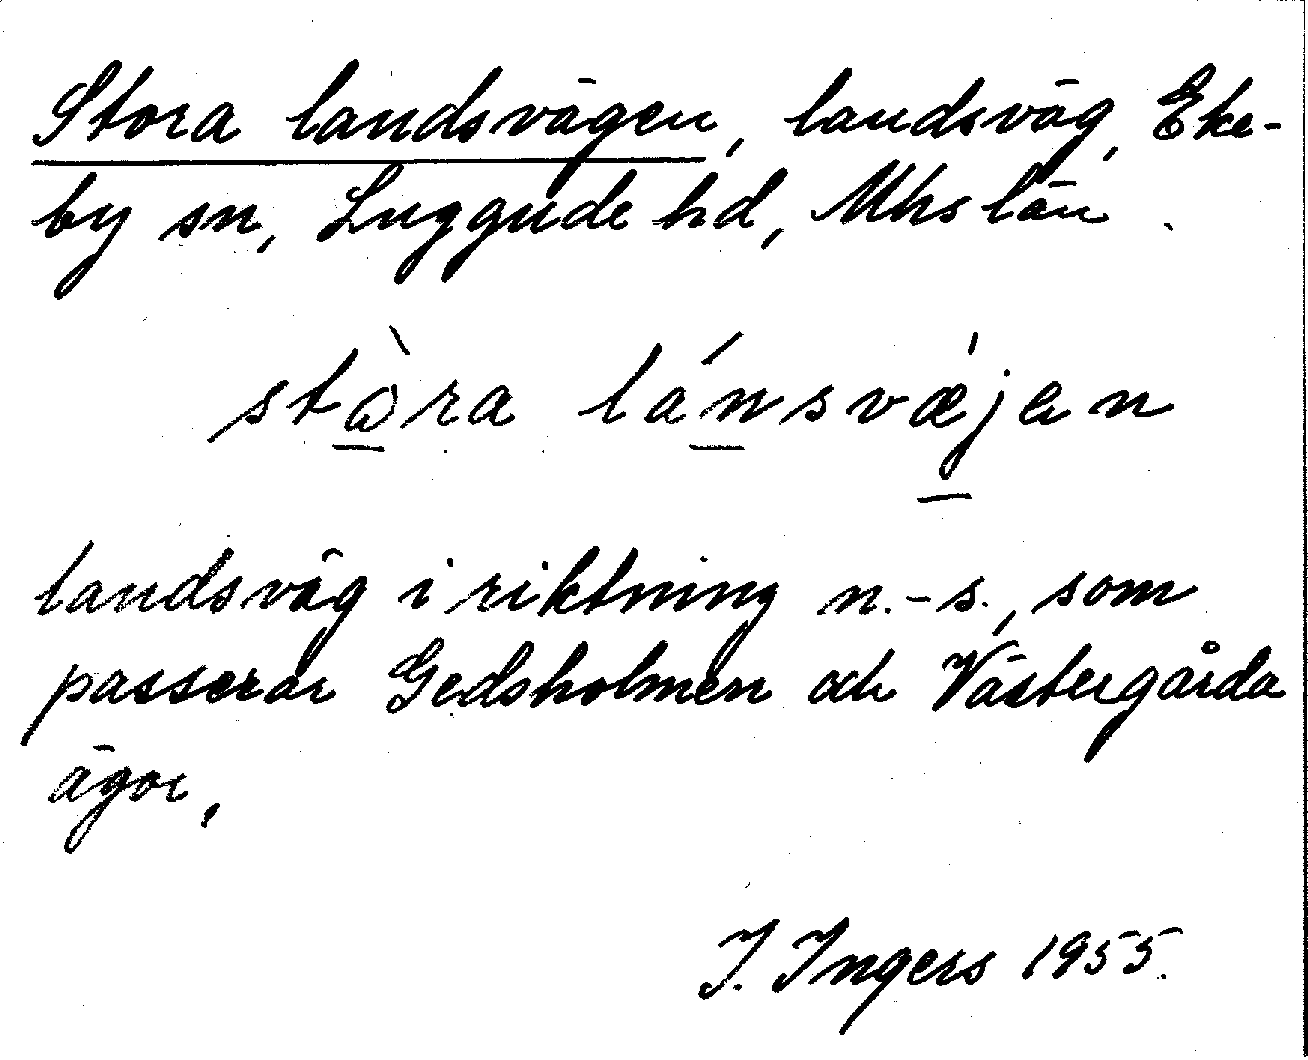 Stora landsvägen, landsväg, Eke-
by sn, Luggude hd, Mhs län.
stɑ̀ra lánsvæ̀jen
landsväg i riktning n.-s., som
passerar Gedsholmen och Västergårda
ägor,
I. Ingers 1955.